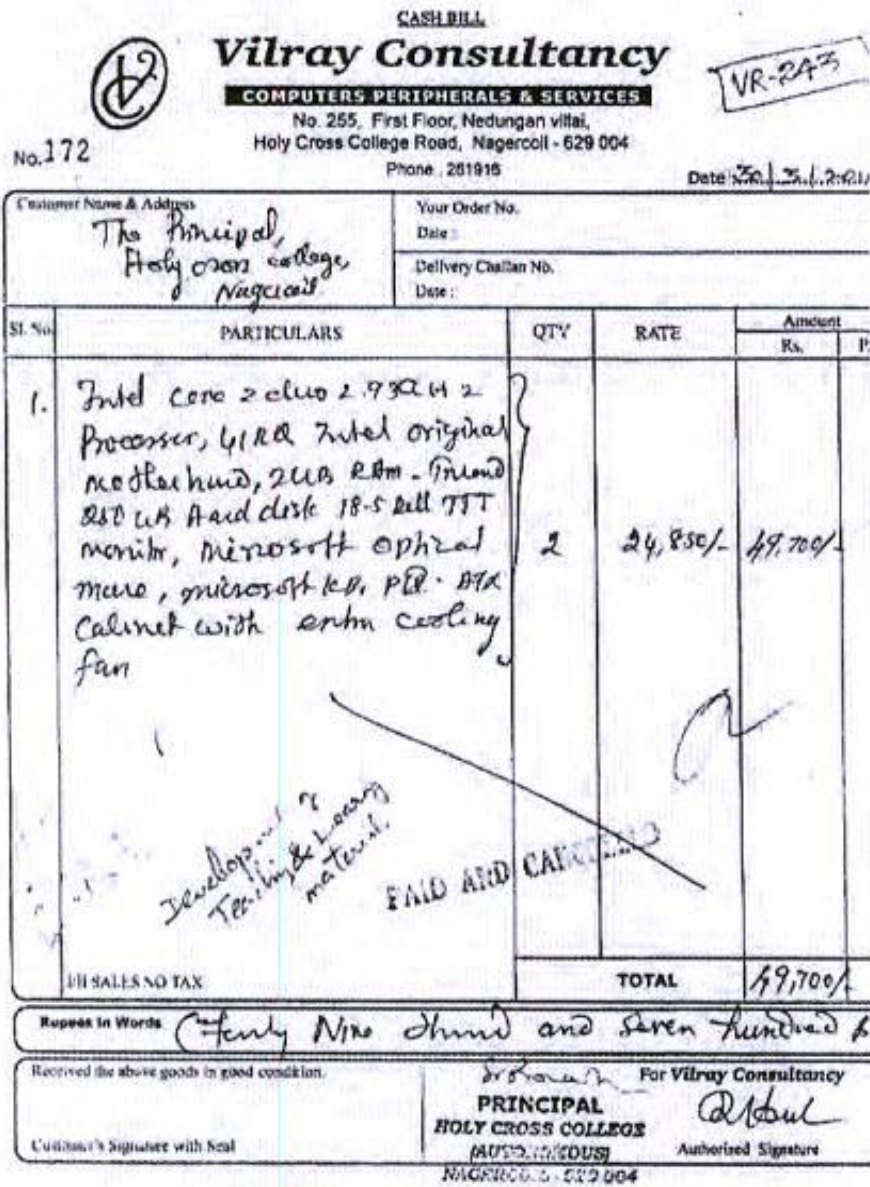 CASH BILL
Vilray Consultancy
COMPUTERS PERIPHERALS & SERVICES
VR-243
No. 255, First Floor, Nedungan villai,
Holy Cross College Road, Nagercoil - 629 004
No. 172
Phone : 261916
Date : 30/3/201
Customer Name & Address
The Principal,
Holy cross college,
Nagercoil
Your Order No.
Date :
Delivery Challan No.
Date :
Sl. No. PARTICULARS QTY RATE Amount
Rs. P.
1. Intel Core 2 duo 2.93GHz
Processor, 41RQ Intel original
motherboard, 2GB RAM -
250 GB Hard disk 18.5 Dell TFT
monitor, microsoft optical 2 24,850/- 49,700/-
mouse, microsoft KB, ATX
Cabinet with extra cooling
fan
Development of
Teaching & Learning
material.
PAID AND CANCELLED
I/II SALES NO TAX TOTAL 49,700/-
Rupees in Words Nine and Seven hundred
Received the above goods in good condition.
For Vilray Consultancy
PRINCIPAL
HOLY CROSS COLLEGE
(AUTONOMOUS)
NAGERCOIL - 629 004
Customer's Signature with Seal
Authorised Signature